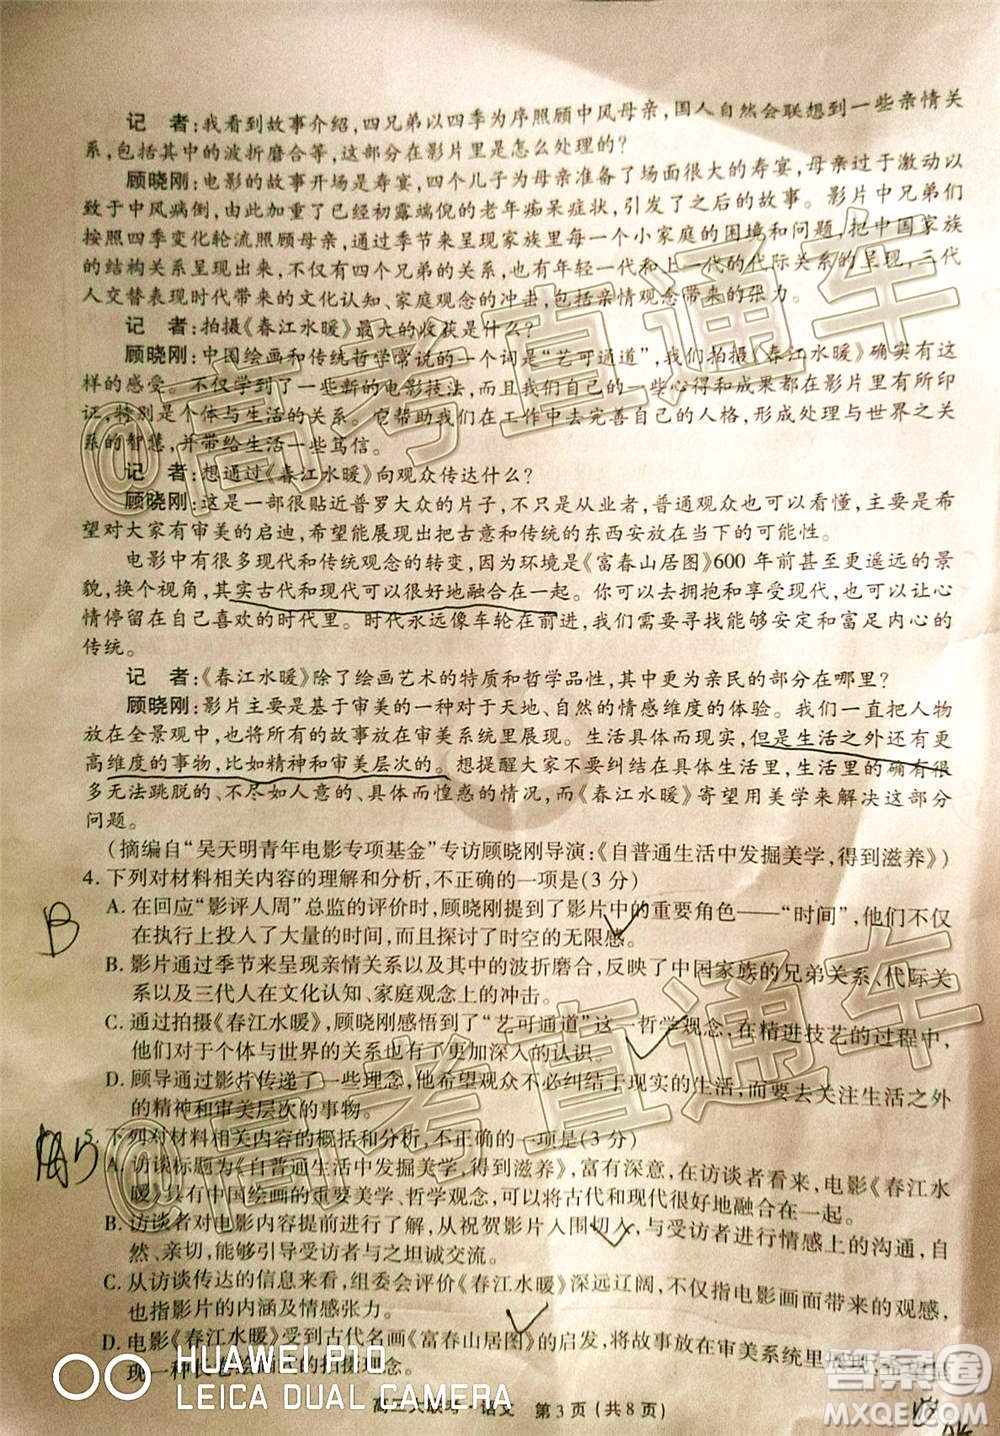 记　者:我看到故事介绍,四兄弟以四季为序照顾中风母亲,国人自然会联想到一些亲情关
系,包括其中的波折磨合等,这部分在影片里是怎么处理的?
顾晓刚:电影的故事开场是寿宴,四个儿子为母亲准备了场面很大的寿宴,母亲过于激动以
致于中风病倒,加重了已经初露端倪的老年痴呆症状,引发了之后的故事。影片中兄弟们
按照四季变化轮流照顾母亲,通过季节来呈现家族里每一个小家庭的困境和问题,把中国家族
的结构关系呈现出来,不仅有四兄弟的关系,也有年轻一代和上一代的代际关系的呈现,三代
人交替表现时代带来的文化认知、家庭观念的冲击,包括亲情观念带来的张力。
记　者:拍摄《春江水暖》最大的收获是什么?
顾晓刚:中国绘画和传统哲学常说的一个词是“艺可通道”,我们拍摄《春江水暖》确实有这
样的感受。不仅学到了一些新的电影技法,而且我们自己的一些心得和成果都在影片里有所印
证,特别是个体与生活的关系。它帮助我们在工作中去完善自己的人格,形成处理与世界的关系
的智慧,并带给生活一些笃信。
记　者:想通过《春江水暖》向观众传达什么?
顾晓刚:这是一部很贴近普罗大众的片子,不只是从业者,普通观众也可以看懂,主要是希
望对大家有审美的启迪,希望能展现出把古意和传统的东西安放在当下的可能性。
电影中有很多现代和传统观念的转变,因为环境是《富春山居图》600 年前甚至更遥远的景
貌,换个视角,其实古代和现代可以很好地融合在一起。你可以去拥抱和享受现代,也可以让心
情停留在自己喜欢的时代里。时代永远像车轮在前进,我们需要的是能够安定和富足内心的
的传统。
记　者:《春江水暖》除了绘画艺术的特质和哲学品性,其更为亲民的部分在哪里?
顾晓刚:影片主要是基于审美的一种对于天地、自然的情感维度的体验。我们一直把人物
放在全景观中,也是期待把故事放在审美系统里展现。生活具体而现实,但是生活之外还有更
高维度的事物,比如精神和审美层次的。想提醒大家不要纠结在生活里,生活的确有很
多无法跳脱的、不尽如人意的、具体而惶惑的情况,而《春江水暖》寄望用美学来解决这部分
问题。
(摘编自“吴天明青年电影专项基金”专访顾晓刚导演:《自普通生活中发掘美学,得到滋养》)
4. 下列对材料相关内容的理解和分析,不正确的一项是(3 分)
B
A. 在回应“影评人周”总监的评价时,顾晓刚提到了影片中的重要角色——“时间”,他们不仅
在执行上投入了大量的时间,而且探讨了时空的无限感。
B. 影片通过季节来呈现亲情关系以及其中的波折磨合,反映了中国家族的兄弟关系、代际关
系以及三代人在文化认知、家庭观念上的冲击。
C. 通过拍摄《春江水暖》,顾晓刚感悟到了“艺可通道”这一哲学观念,在精进技艺的过程中,
他们对个体与世界的关系有了更加深入的认识。
D. 顾导通过影片传递了一些理念,他希望观众不必纠结于现实的生活,而要去关注生活之外
的精神和审美层次的事物。
5. 下列对材料相关内容的概括和分析,不正确的一项是(3 分)
A. 访谈标题为《自普通生活中发掘美学,得到滋养》,富有深意,在访谈者看来,电影《春江水
暖》具有中国绘画的重要美学、哲学观念,可以将古代和现代很好地融合在一起。
B. 访谈者对电影内容提前进行了解,从祝贺影片入围切入,与受访者进行情感上的沟通,自
然、亲切,能够引导受访者与之坦诚交流。
C. 从访谈传达的信息来看,组委会评价《春江水暖》深远辽阔,不仅指电影画面带来的观感,
也指影片的内涵及情感张力。
D. 电影《春江水暖》受到古代名画《富春山居图》的启发,将故事放在审美系统里
现一种类似绘画的拍摄观念。
高三大联考·语文　第 3 页 (共 8 页)
HUAWEI P10
LEICA DUAL CAMERA
@高考直通车
@高考直通车
答案圈